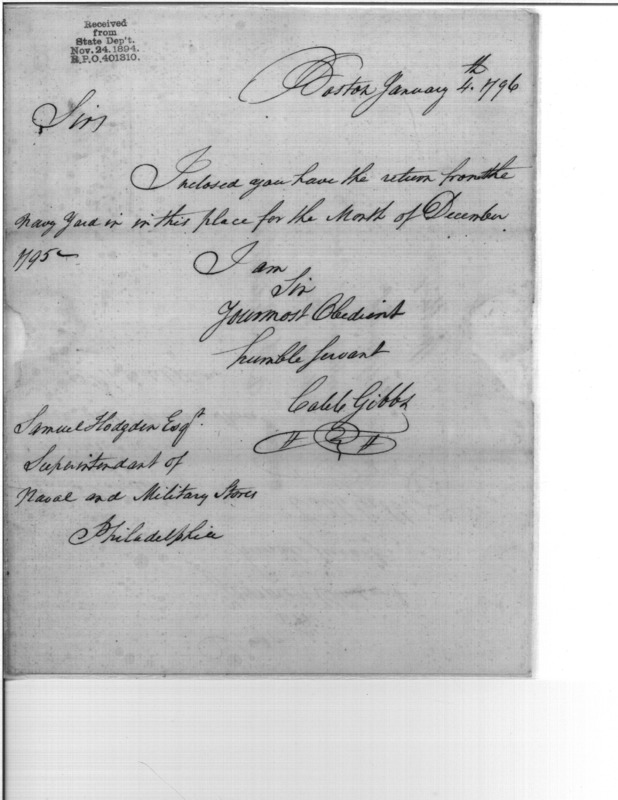 Received
from
State Dep't.
Nov. 24. 1894.
R.P.O. 401310.
Boston January 4th. 1796
Sir,
Inclosed you have the return from the
Navy Yard in in this place for the Month of December
1795
I am
Sir
Your most Obedient
humble Servant
Caleb Gibbs
Samuel Hodgden Esqr.
Superintendant of
Naval and Military Stores
Philadelphia